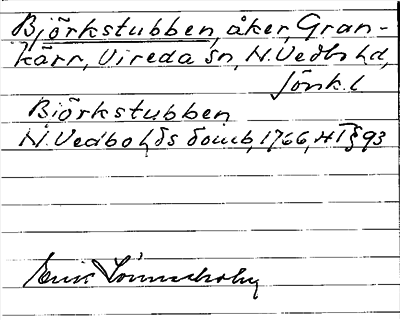 Björkstubben, åker, Gran-
kärr, Vireda sn, N. Vedbo hd,
Jönk. l
Björkstubben
N. Vedbo hds domb, 1766, HT § 93
Erik